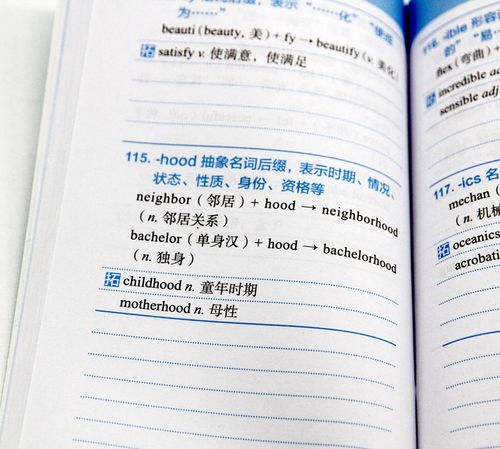 为……”
beauti (beauty, 美) + fy → beautify (v. 美化)
拓 satisfy v. 使满意，使满足
115. -hood 抽象名词后缀，表示时期、情况、
状态、性质、身份、资格等
neighbor (邻居) + hood → neighborhood
(n. 邻居关系)
bachelor (单身汉) + hood → bachelorhood
(n. 独身)
拓 childhood n. 童年时期
motherhood n. 母性
116. -ible 形容
的” “易
flex (弯曲)
拓 incredible ad
sensible adj
117. -ics 名
mechan (
(n. 机械
拓 oceanics
acrobati